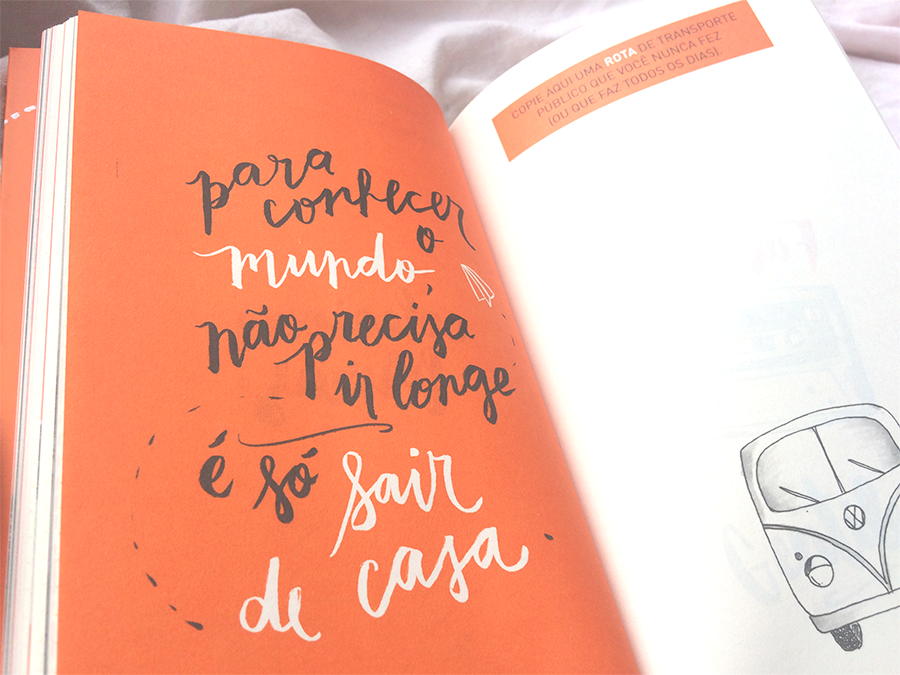 para
conhecer
o
mundo,
não precisa
ir longe
é só sair
de casa
COPIE AQUI UMA ROTA DE TRANSPORTE
PÚBLICO QUE VOCÊ NUNCA FEZ
(OU QUE FAZ TODOS OS DIAS).